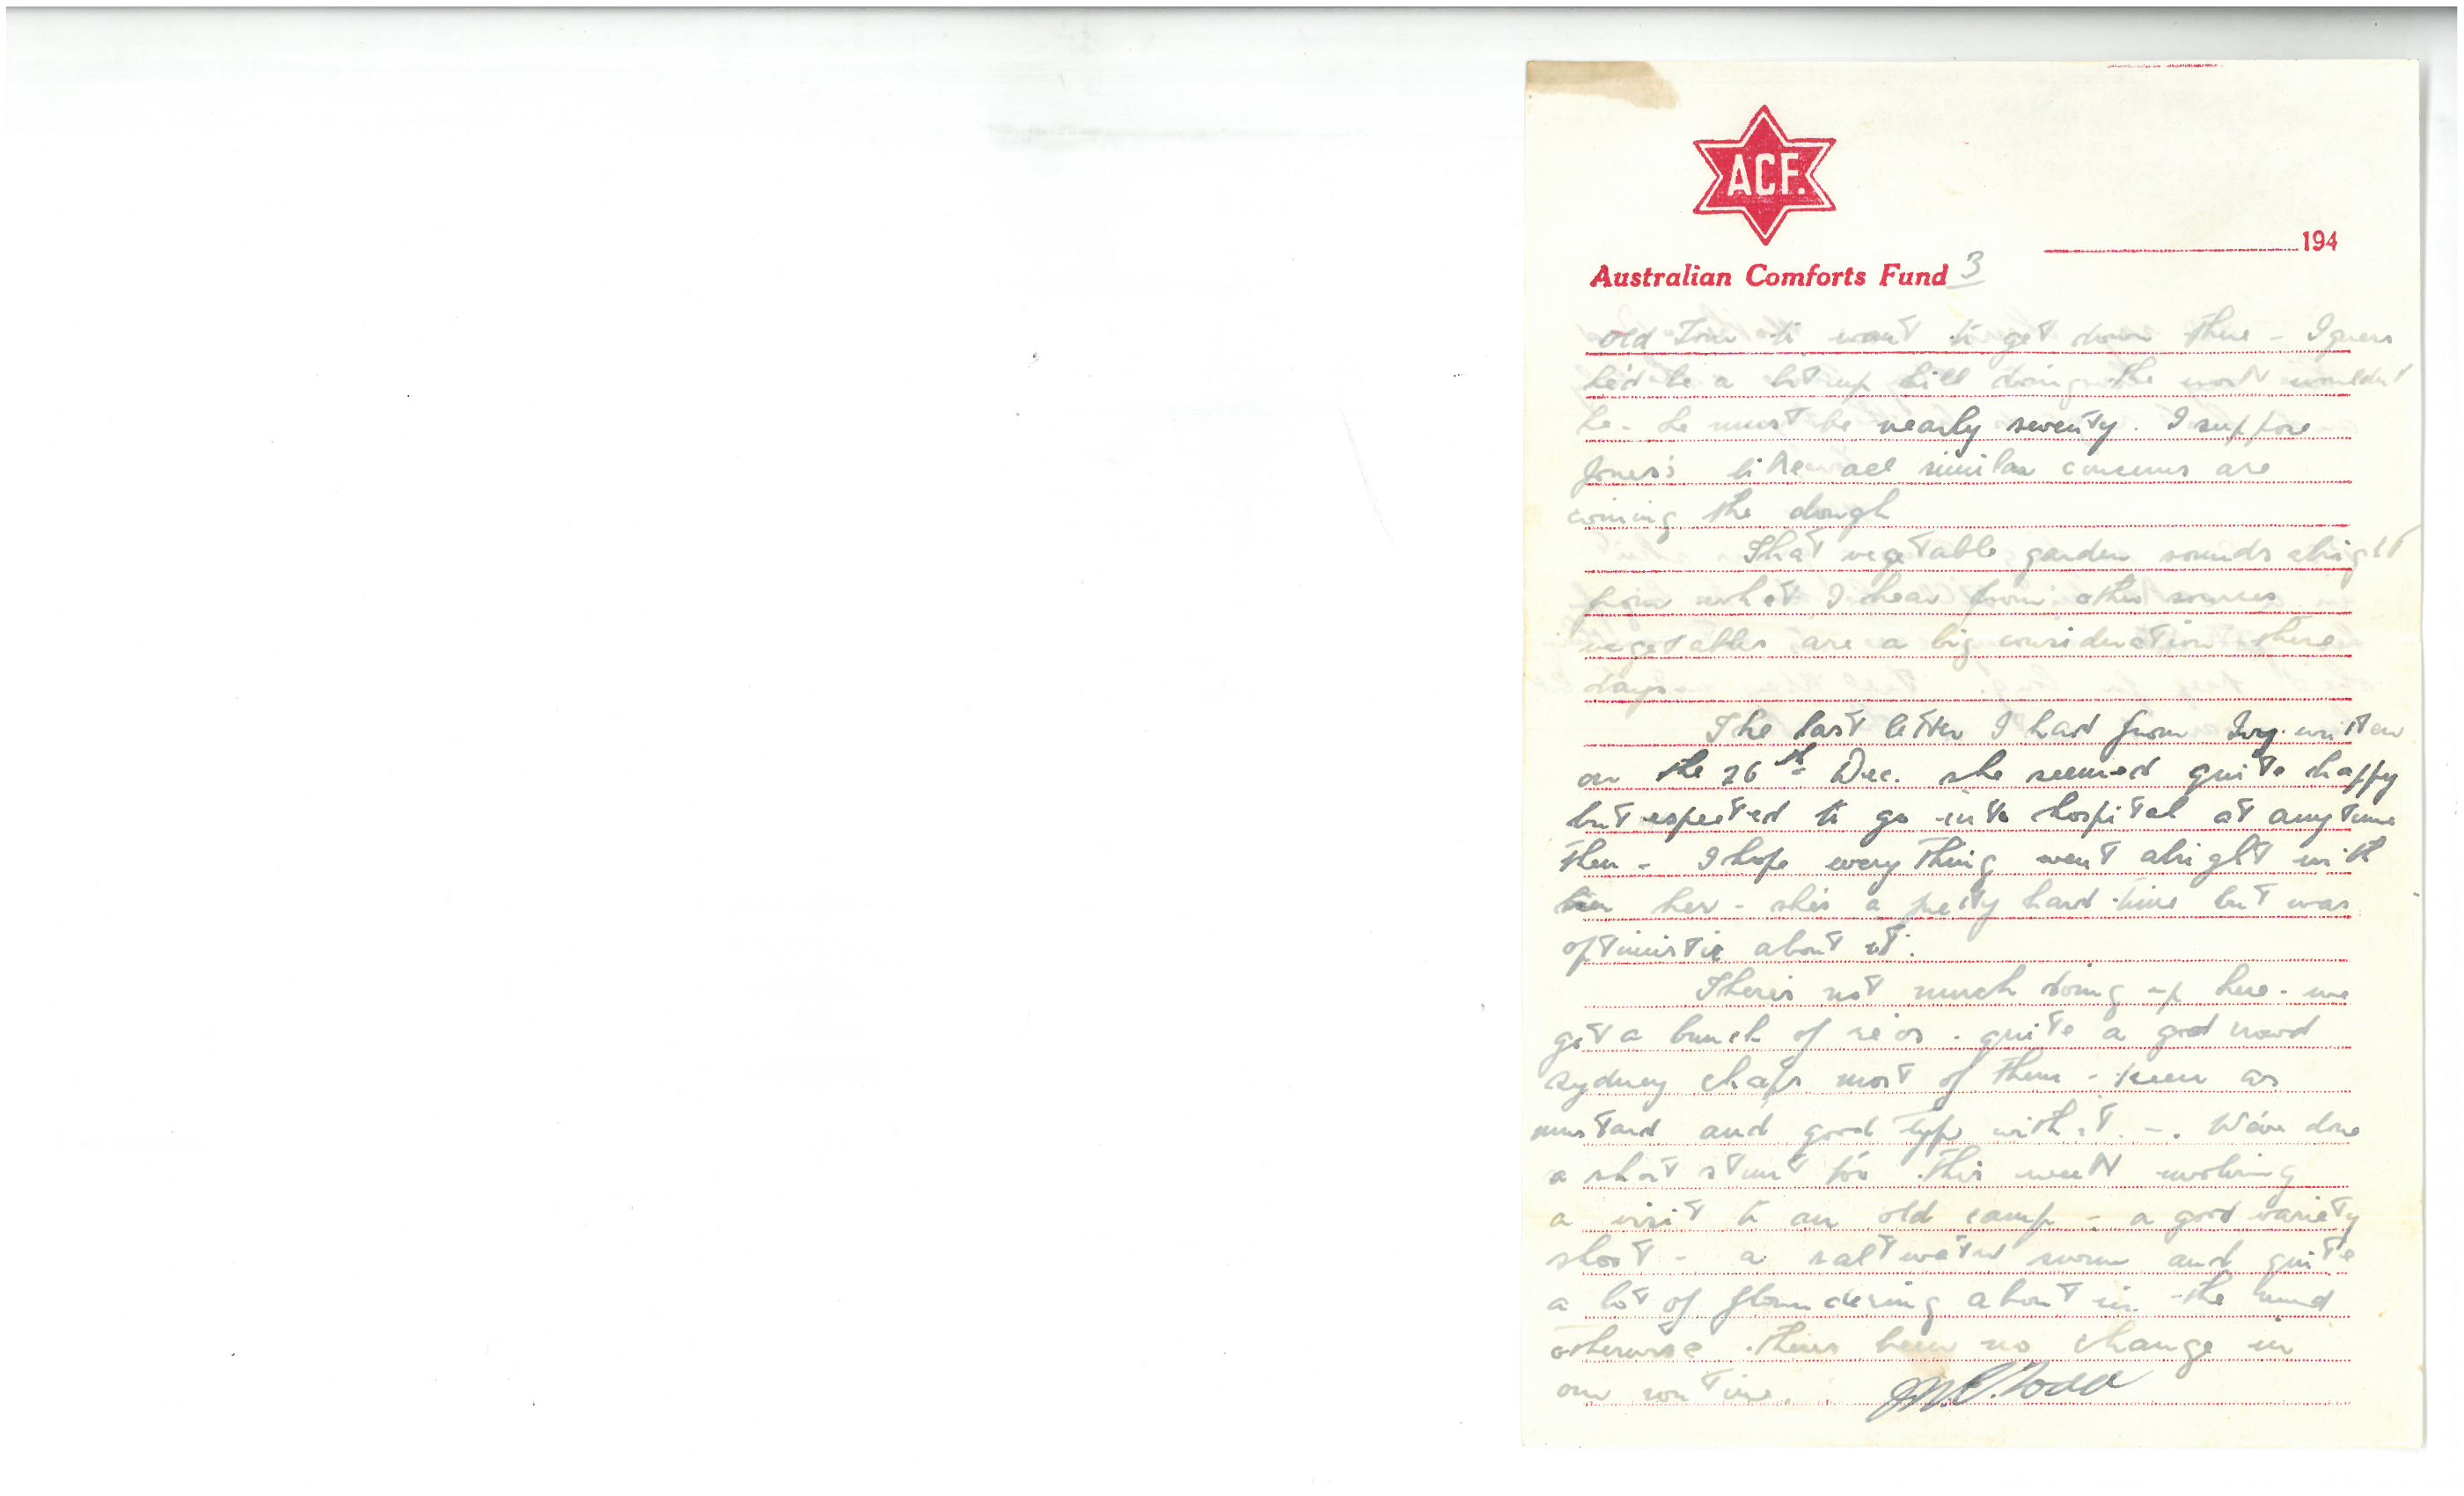 ACF.
194
Australian Comforts Fund 3
old Tom to want to get down there - I guess
he'd be a bit up hill doing the work wouldn't
he - he must be nearly seventy. I suppose
Jones's like all similar concerns are
coining the dough
That vegetable garden sounds alright
from what I hear from other sources
vegetables are a big consideration these
days -
The last letter I had from Ivy written
on the 26th Dec. she seemed quite happy
but expected to go into hospital at anytime
then - I hope everything went alright with
her - she's a pretty hard time but was
optimistic about it.
There's not much doing up here - we
got a bunch of reos. quite a good crowd
Sydney chaps most of them - keen as
mustard and good type with it. -. We've done
a short stunt too this week involving
a visit to an old camp - a good variety
shoot - a salt water swim and quite
a lot of floundering about in the mud
otherwise theres been no change in
our routine.